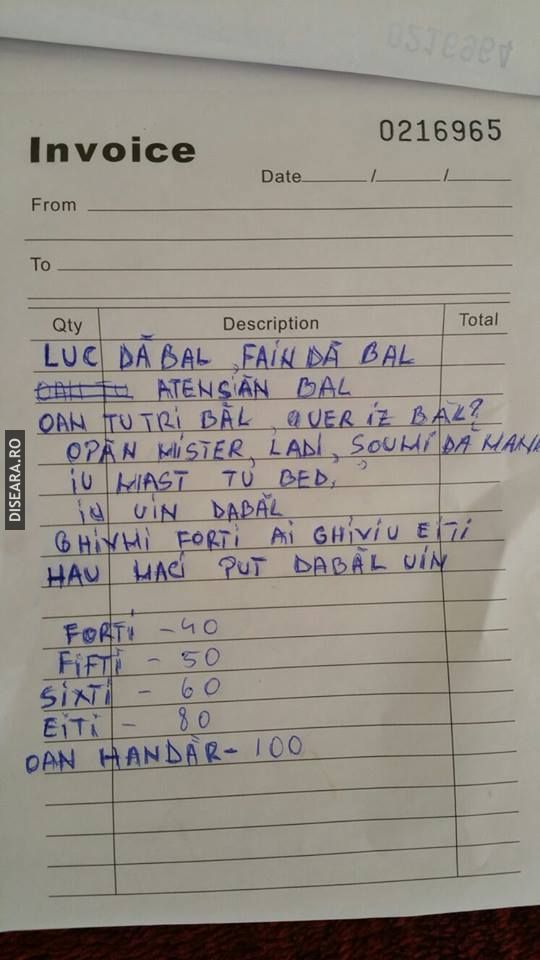 0216964
Invoice
0216965
Date / /
From
To
Qty Description Total
LUC DĂ BAL, FAIN DĂ BAL
ATENȘĂN BAL
OAN TU TRI BĂL, QUER IZ BAL?
OPĂN MISTER, LADI, SOUMI DĂ MANI
IU MIAST TU BED,
IU UIN DABĂL
GHIVMI FORTI AI GHIVIU EITI
HAU MACI PUT DABĂL UIN
FORTI - 40
FIFTI - 50
SIXTI - 60
EITI - 80
OAN HANDĂR - 100
DISEARA.RO